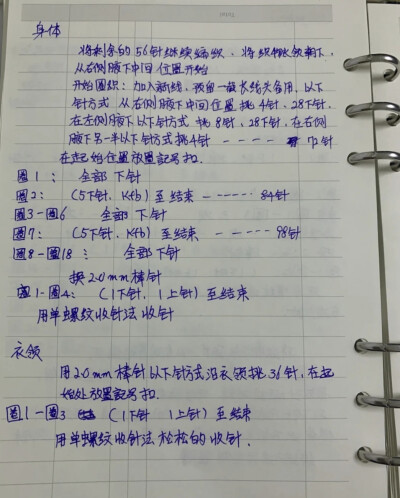 身体
将剩余的56针继续编织，将织物领朝下，
从右侧腋下中间位置开始
开始圈织：加入新线，预留一截长线头备用，以下
针方式 从右侧腋下中间位置挑4针，28下针，
在左侧腋下以下针方式挑8针，28下针，在右侧
腋下另一半以下针方式挑4针 ---- 72针
在起始位置放置记号扣.
圈1： 全部下针
圈2： (5下针，Kfb) 至结束 ----- 84针
圈3-圈6 全部下针
圈7： (5下针，Kfb) 至结束 ----- 98针
圈8-圈18： 全部下针
换2.0mm棒针
圈1-圈4： (1下针，1上针) 至结束
用单螺纹收针法收针
衣领
用2.0mm棒针以下针方式沿衣领挑36针，在起
始处放置记号扣.
圈1-圈3 (1下针 1上针) 至结束
用单螺纹收针法松松的收针.